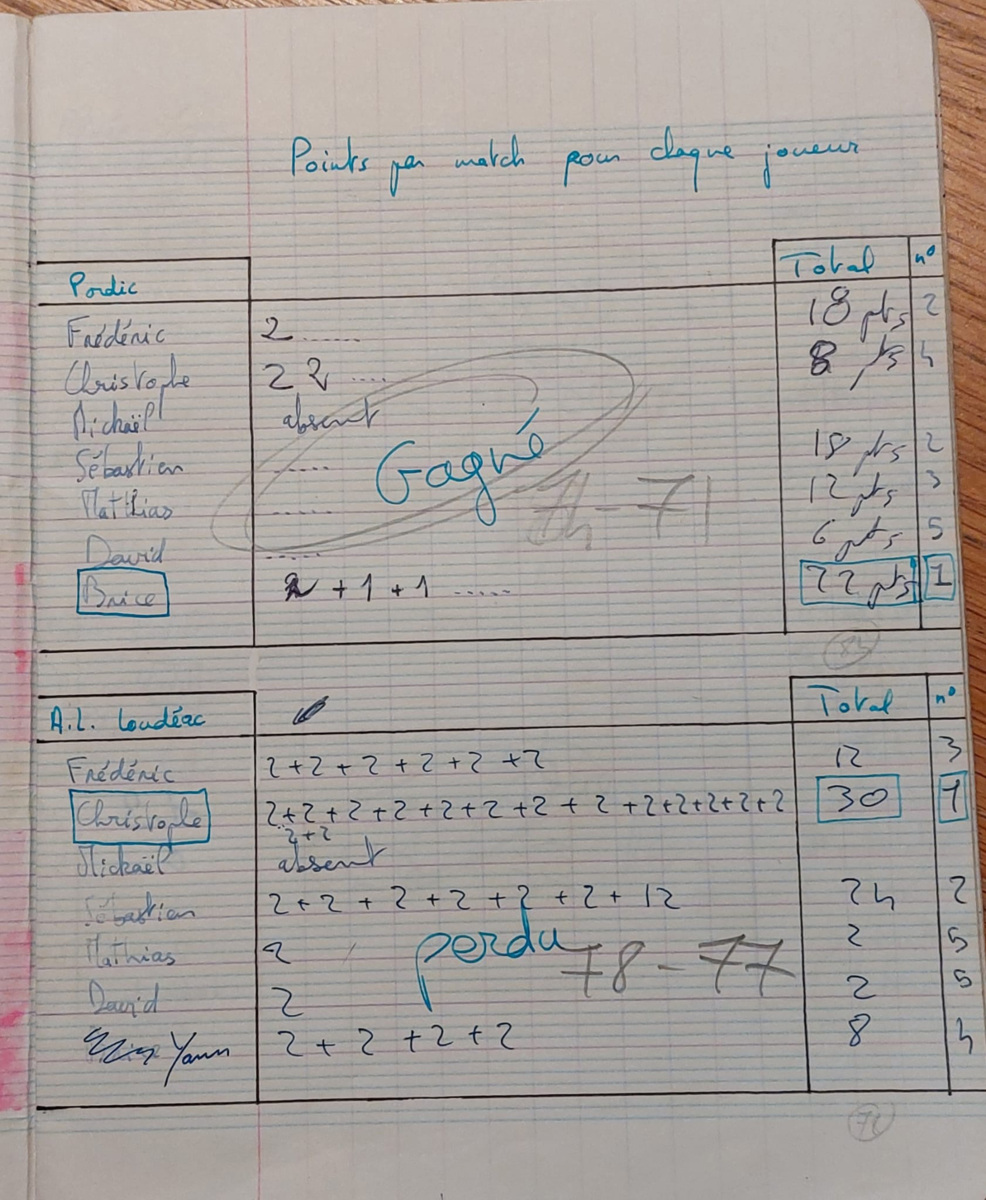 Points par match pour chaque joueur
Pordic Total n°
Frédéric 2 ...... 18 pts 2
Christophe 2 2 .... 8 pts 4
Mickaël absent
Sébastien ..... 18 pts 2
Gagné
Matthias ...... 12 pts 3
74-71
David ...... 6 pts 5
Brice 2 + 1 + 1 ...... 22 pts 1
A.L. Loudéac Total n°
Frédéric 2+2+2+2+2+2 12 3
Christophe 2+2+2+2+2+2+2+2+2+2+2+2+2 30 1
2+2
Mickaël absent
Sébastien 2+2+2+2+2+2+12 24 2
Mathias 2 2 5
perdu 78-77
David 2 2 5
Yann 2+2+2+2 8 4